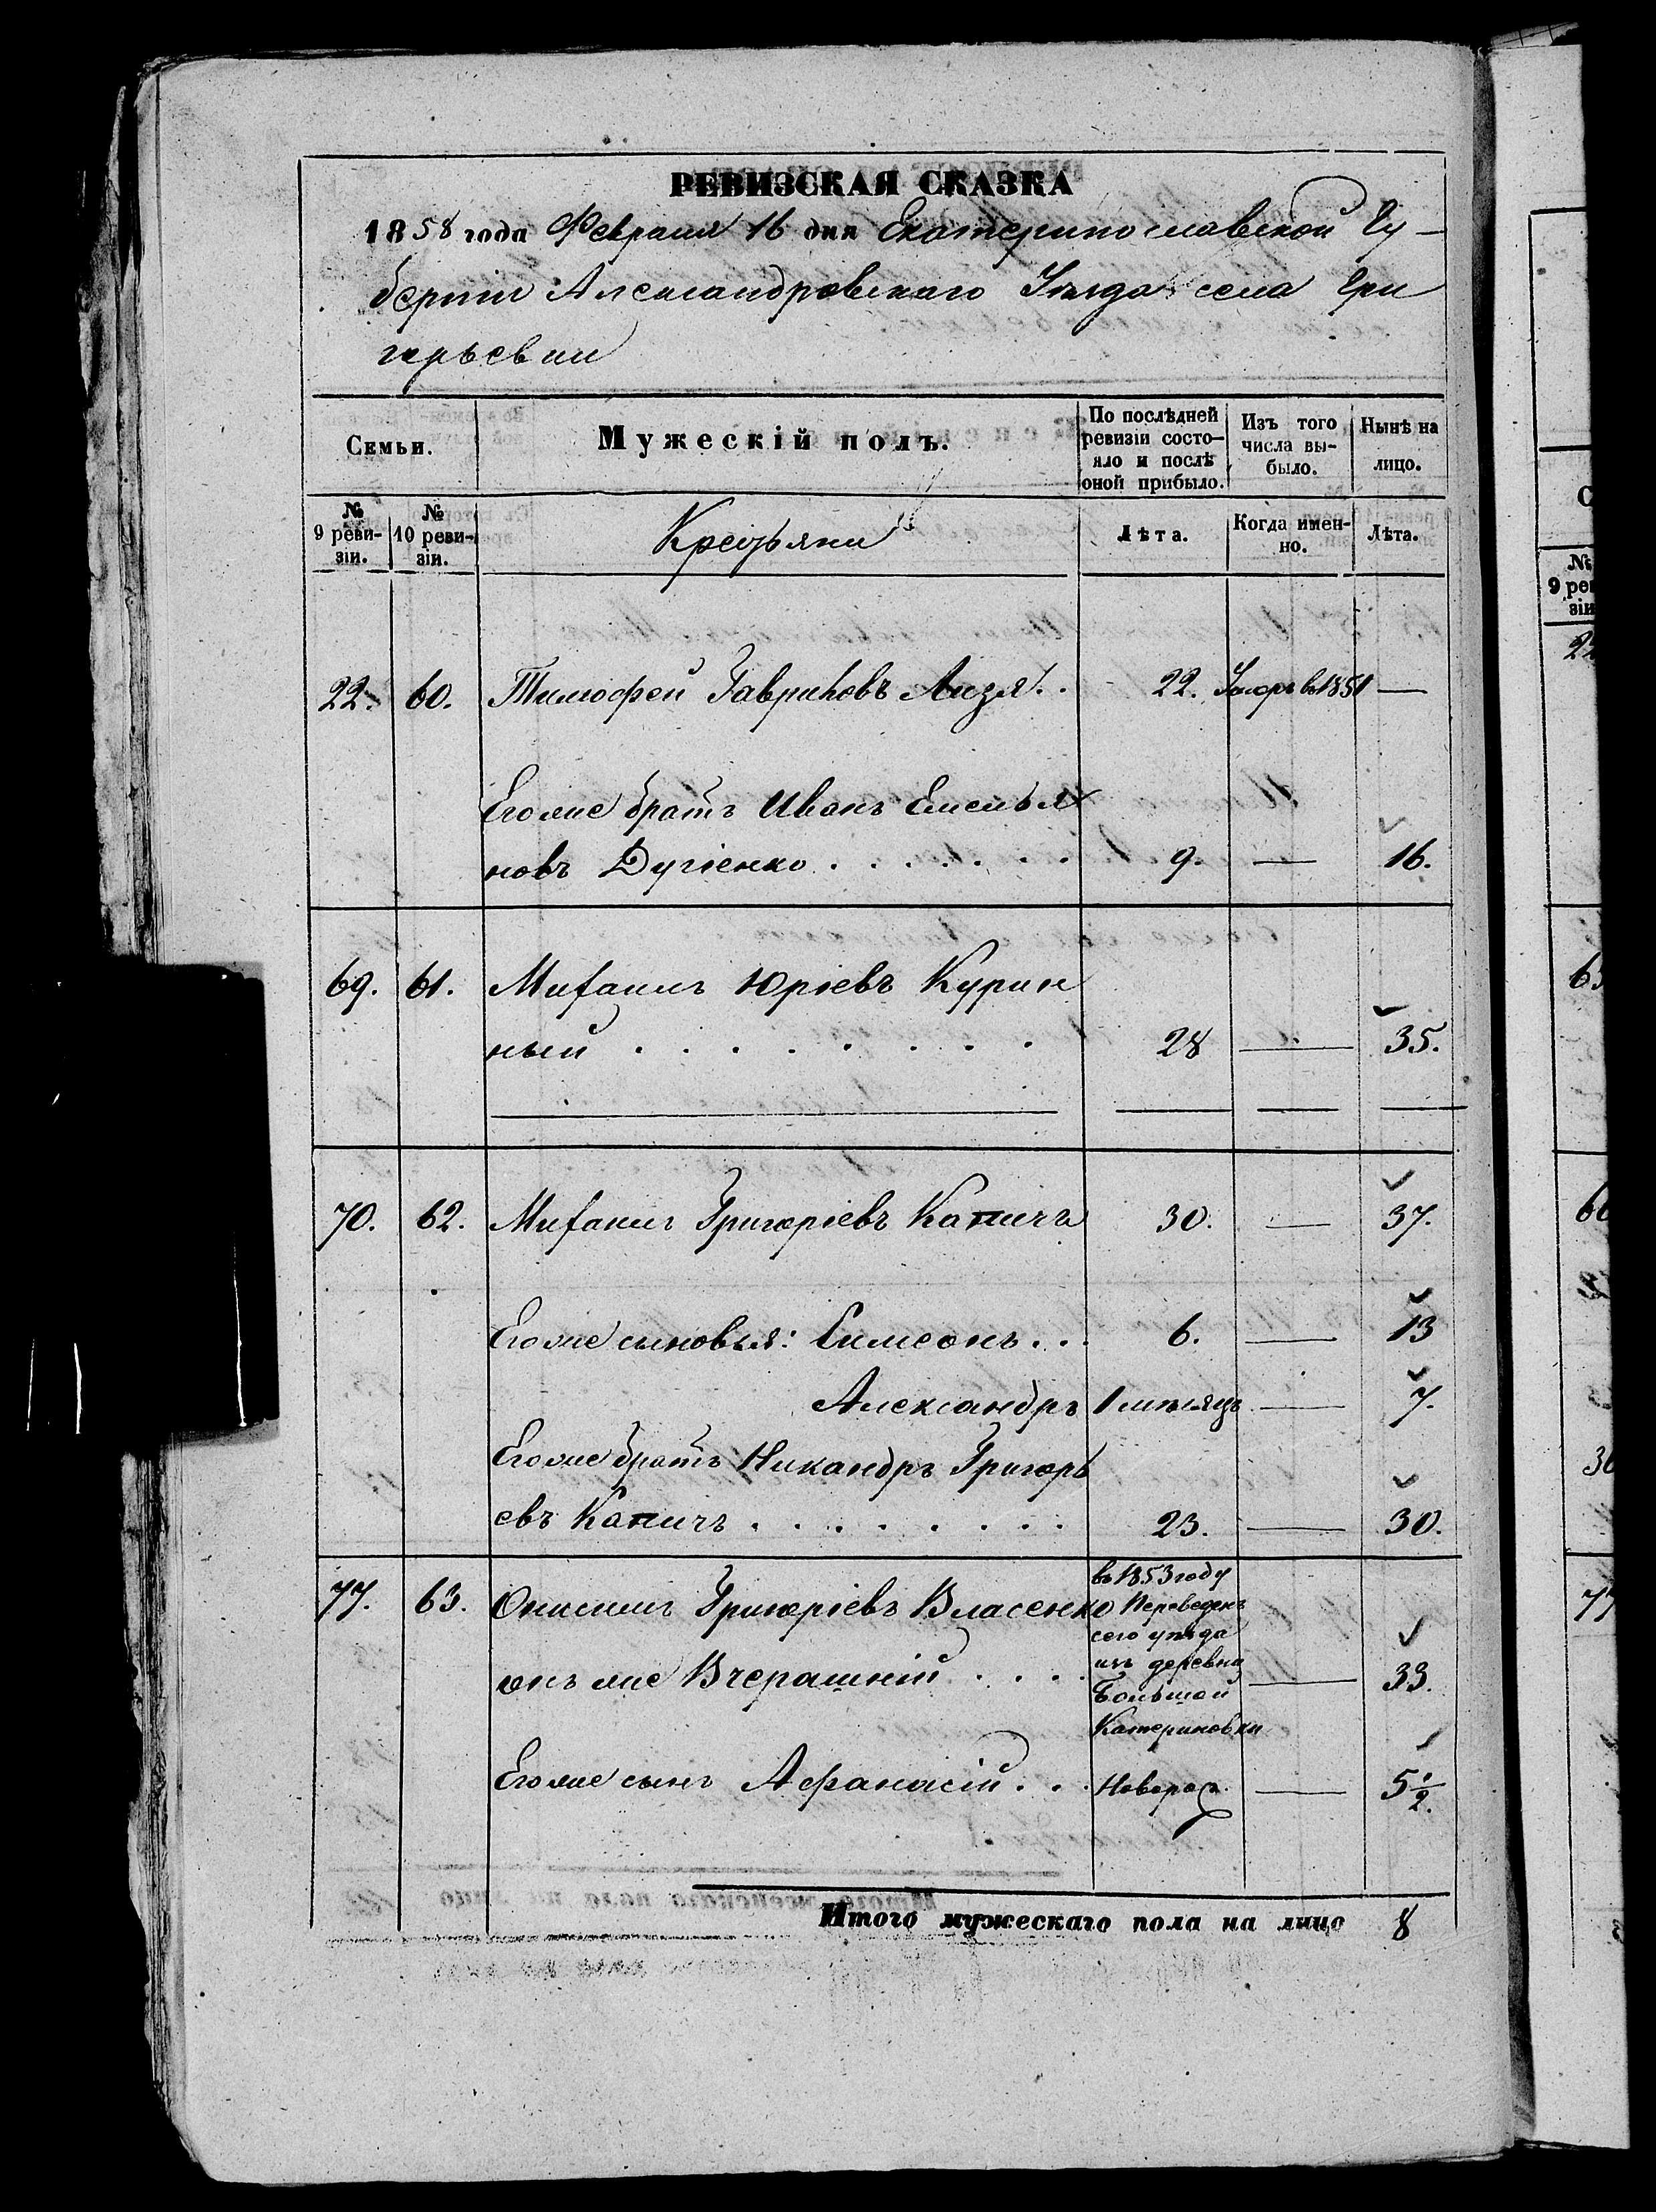 РЕВИЗСКАЯ СКАЗКА
1858 года Февраля 16 дня Екатеринославской Гу-
берніи Александровскаго Уѣзда села Гри
горьевки
Семьи. Мужескій полъ. По послѣдней ревизіи состо-яло и послѣ оной прибыло. Изъ того числа вы-было. Нынѣ на лицо.
№ 9 реви-зіи. № 10 реви-зіи. Крестьяне Лѣта. Когда имен-но. Лѣта.
22. 60. Тимофей Гавриловъ Лизя . . 22. Умеръ въ 1851 —
Его же братъ Иванъ Емелья
новъ Дугіенко . . . . . . 9. — 16.
69. 61. Михаилъ Юріевъ Курин
ный . . . . . . . . 28 — 35.
70. 62. Михаилъ Григоріевъ Капичъ 30. — 37.
Его же сыновья: Симеонъ . . . 6. — 13
Александръ 1 мѣсяцъ — 7.
Его же братъ Никандръ Григорь
евъ Капичъ . . . . . . . 23. — 30.
77. 63. Онисимъ Григоріевъ Власенко
онъ же Вчерашній . . . — 33.
въ 1853 году
Переведенъ
сего уѣзда
изъ деревни
Большой
Катериновки
Его же сынъ Афанасій . . . Новорож. — 5 1/2.
Итого мужескаго пола на лицо 8
№
9 реви
зіи
22
77